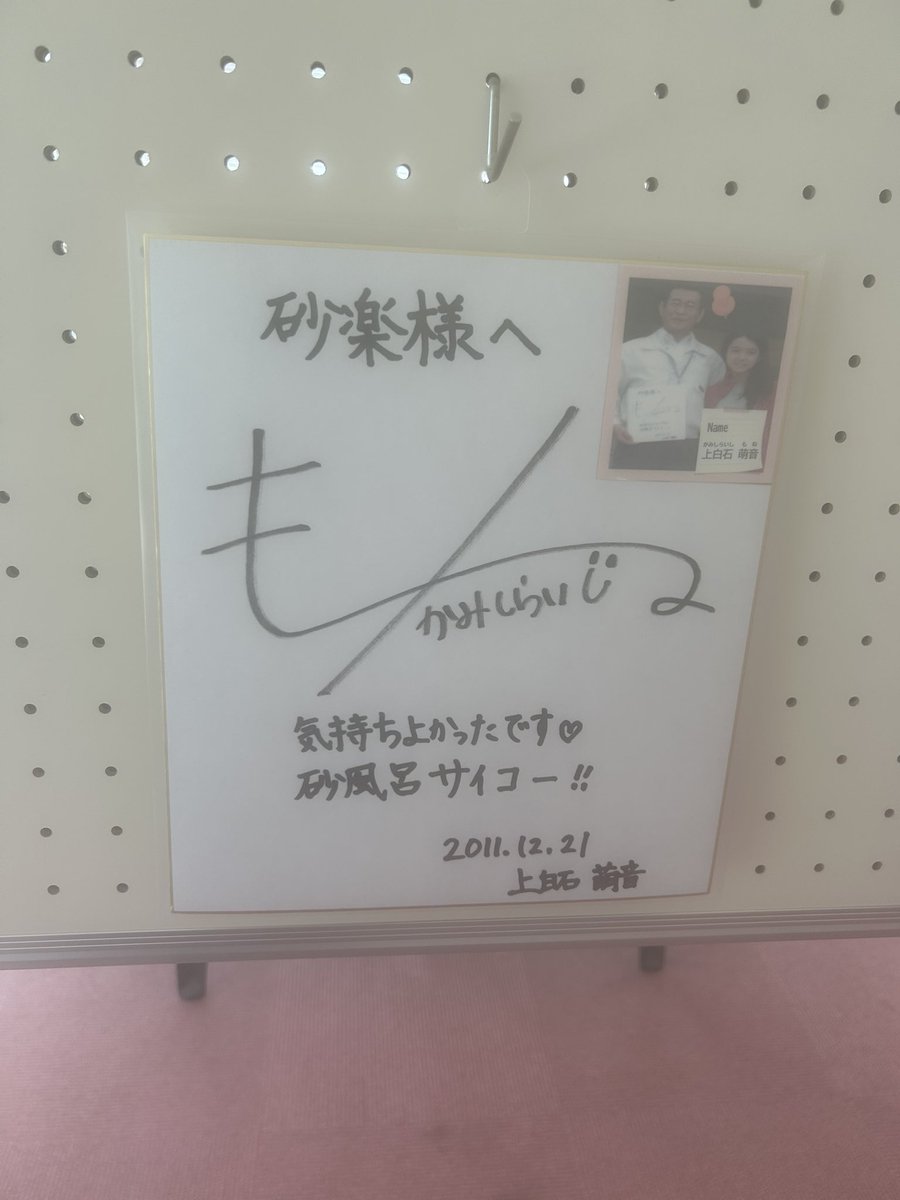 砂楽様へ
Name
かみしらいし もね
上白石 萌音
もね
かみしらいし
気持ちよかったです♡
砂風呂サイコー!!
2011.12.21
上白石 萌音